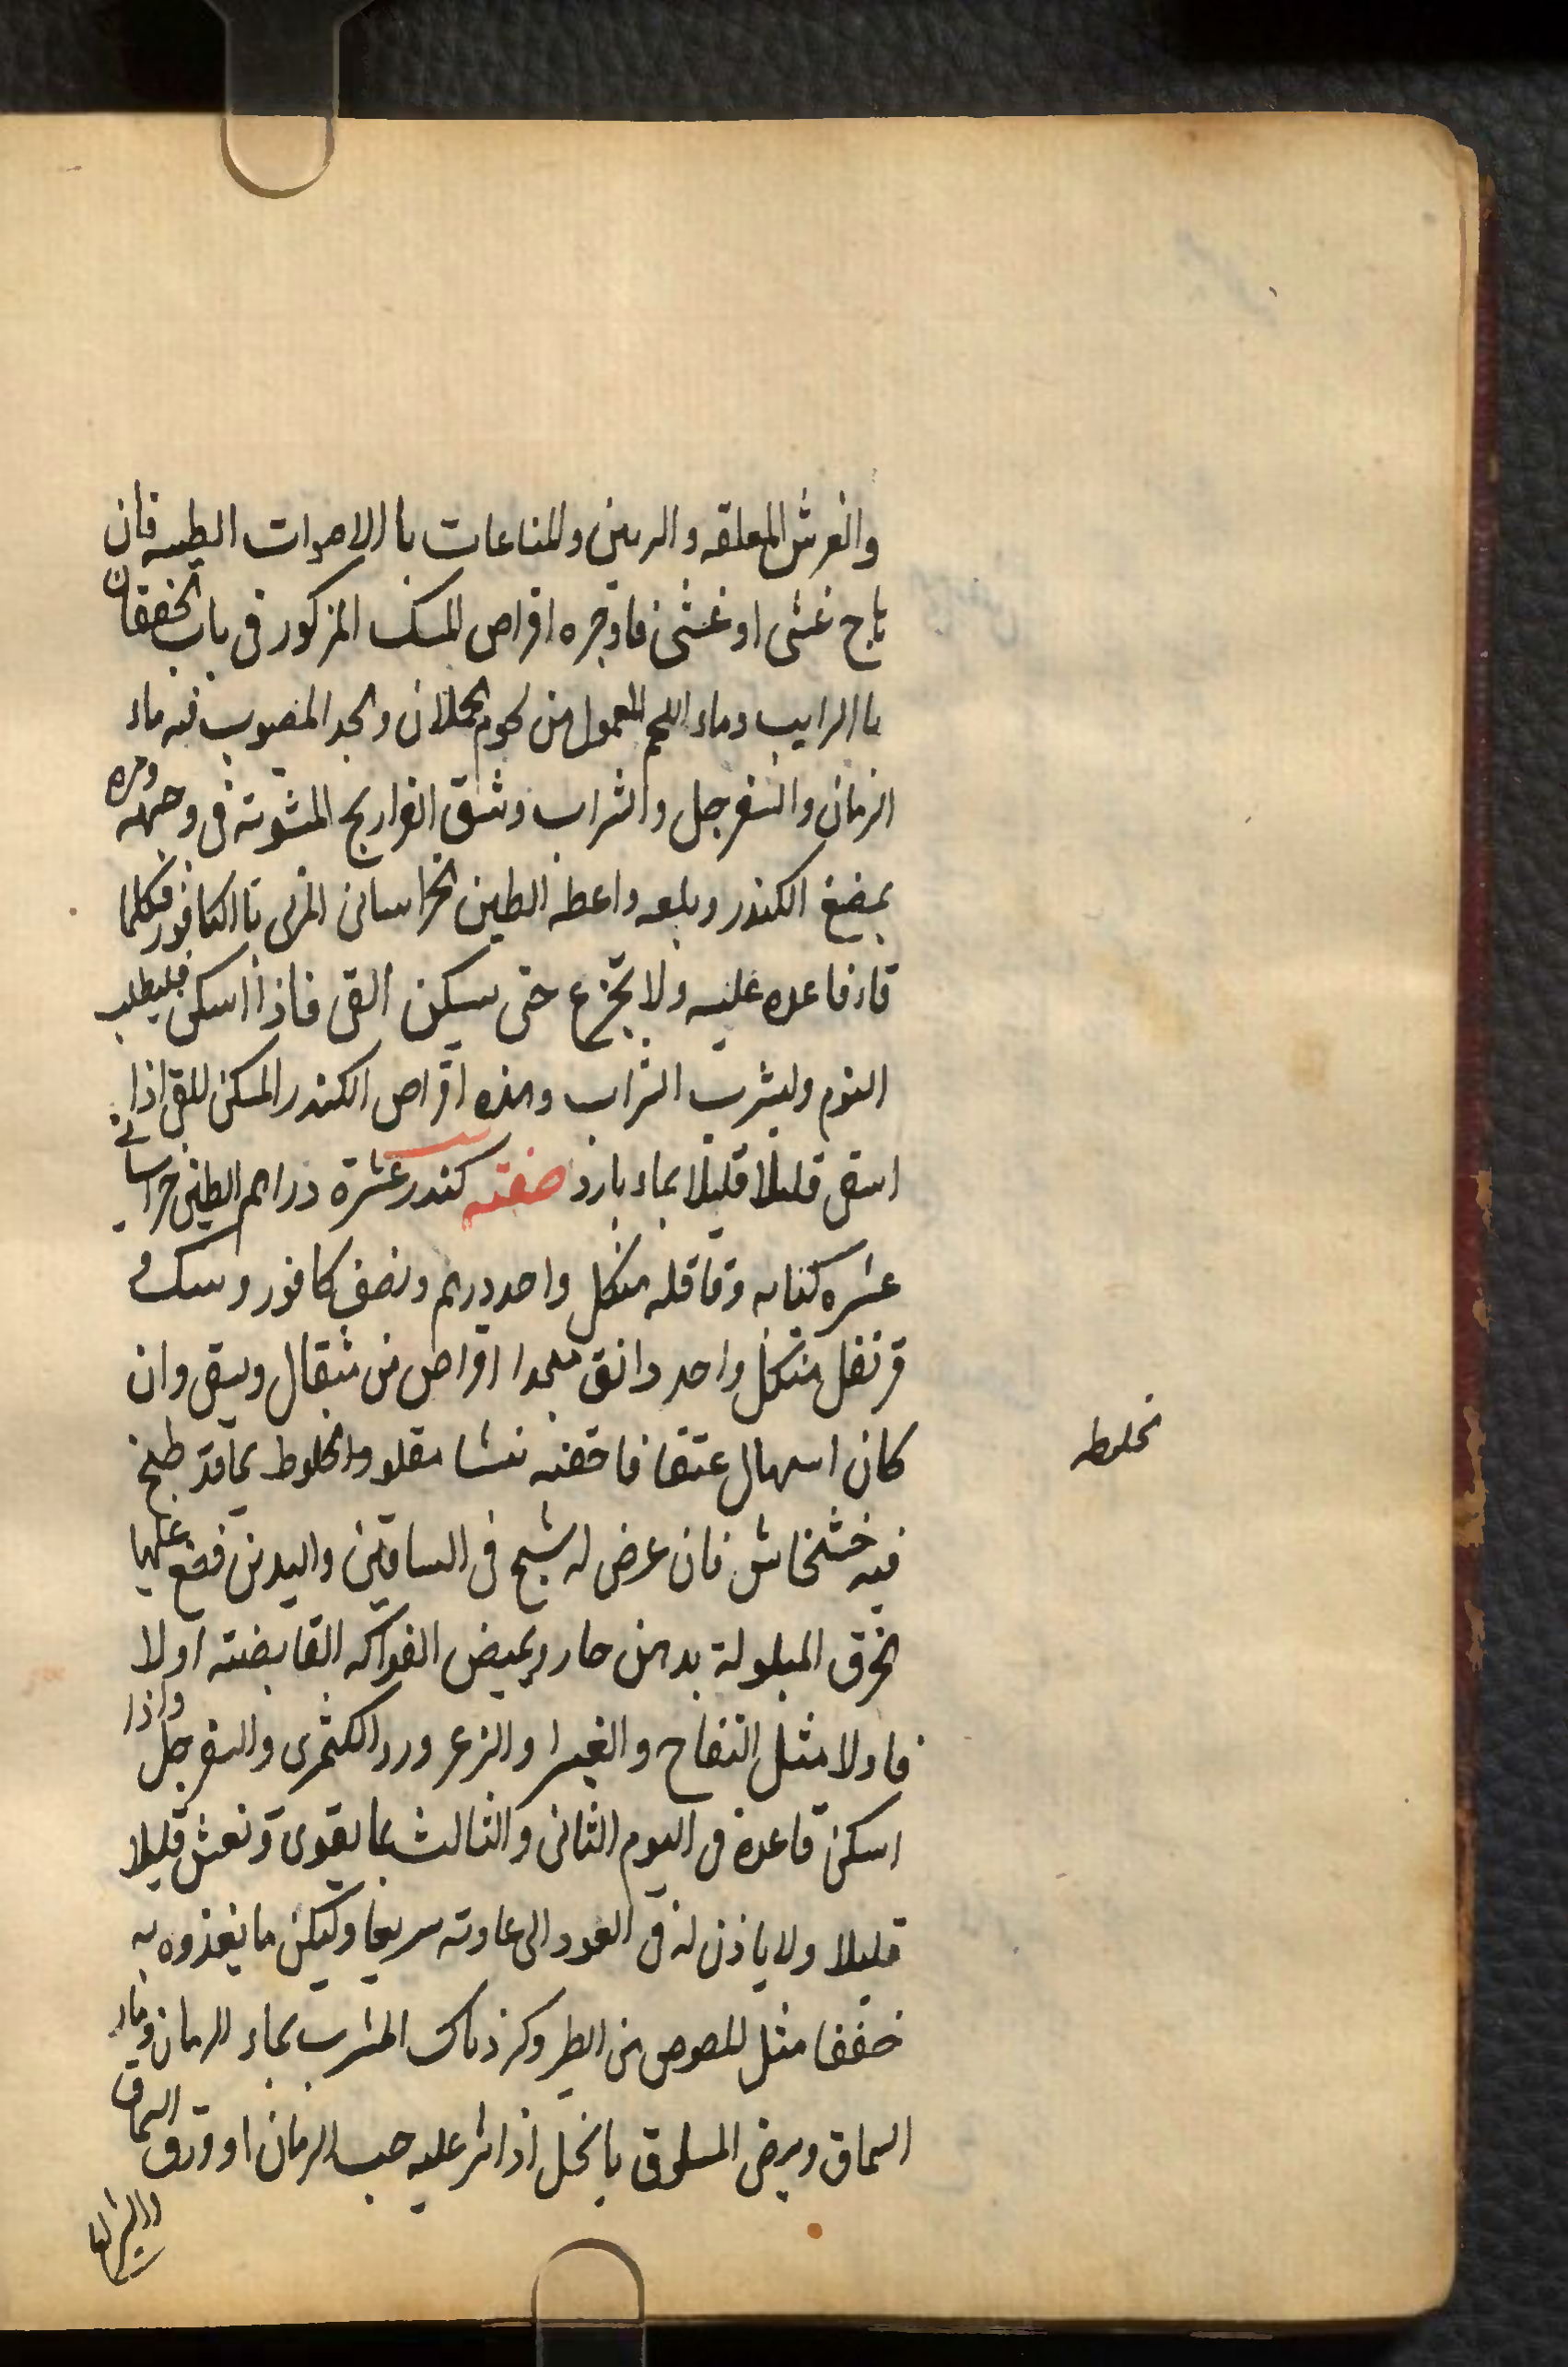 والفرش المعلقه والربين والمناعات باالاصوات الطيبه فان
باح غشى او غشى فاوجره اقراص المسك المذكور فى باب الخفقان
باالرايب وماء اللحم المعمول من لحوم الحملان والجد المصبوب فيه ماء
الرمان والسفرجل والشراب وشق الفراريج المشوية فى وجهه ومره
بمضغ الكندر وبلعه واعطه الطين الخراسانى المربى باالكافور فكلما
قاء فاعده عليه ولا تجزع حتى يسكن القى فاذا اسكن فليطلب
النوم وليشرب الشراب وهذه اقراص الكندر المسكن للقى اذا
اسقى قليلا قليلا بماء بارد صفته كندر عشرة دراهم الطين خراسانى
عشره كبابه وقاقله منكل واحد درهم ونصف كافور وسك و
قرنفل منكل واحد دانق اقراص من مثقال ويسقى وان
كان اسهال عتقا فاحقنه نشا مقلو والخلوط بماقد طبخ
فيه خشخاش فان عرض له شبح فى الساقين واليدين فضع عليها
الخرق المبلولة بدهن حار ويميض الفواكه القابضته اولا
فاولا مثل التفاح والغبيرا والزعرور والكثمرى والسفرجل واذا
اسكن فاعده فى اليوم الثانى والثالث بما يقوى وتنعش قليلا
قليلا ولا ياذن له فى العود الى عاوته سريعا وليكن ما يغذوه به
خففا مثل المصوص من الطير وكرذناك المشرب بماء الرمان وماء
السماق وبيض المسلوق بالخل اذا نثر عليه حب الرمان او ورق السماق
تخلطه